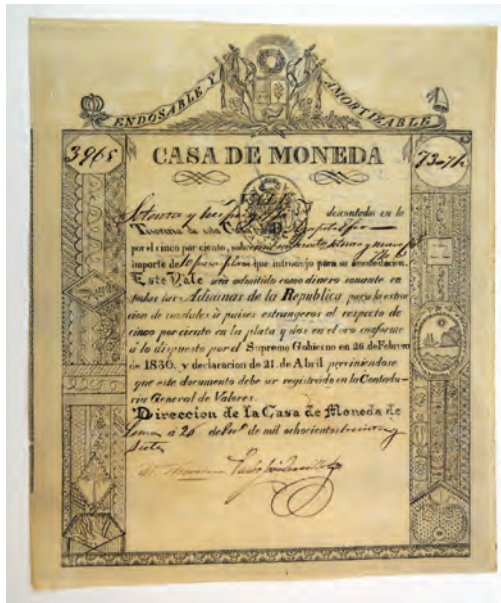 ENDOSABLE Y AMORTIZABLE
3965
CASA DE MONEDA
Setenta y tres p.s descontados en la
Tesoreria de esta Casa
por el cinco por ciento, sobre
importe de que introdujo para su amonedacion.
Este Vale será admitido como dinero sonante en
todas las Aduanas de la Republica, para la extrac
cion de caudales à paises estrangeros al respecto de
cinco por ciento en la plata y dos en el oro conforme
á lo dispuesto por el Supremo Gobierno en 26 de Febrero
de 1830, y declaracion de 21. de Abril previniendose
que este documento debe ser registrado en la Contadu-
ria General de Valores.
Direccion de la Casa de Moneda de
Lima a 20 de de mil ochocientos treinta y
siete